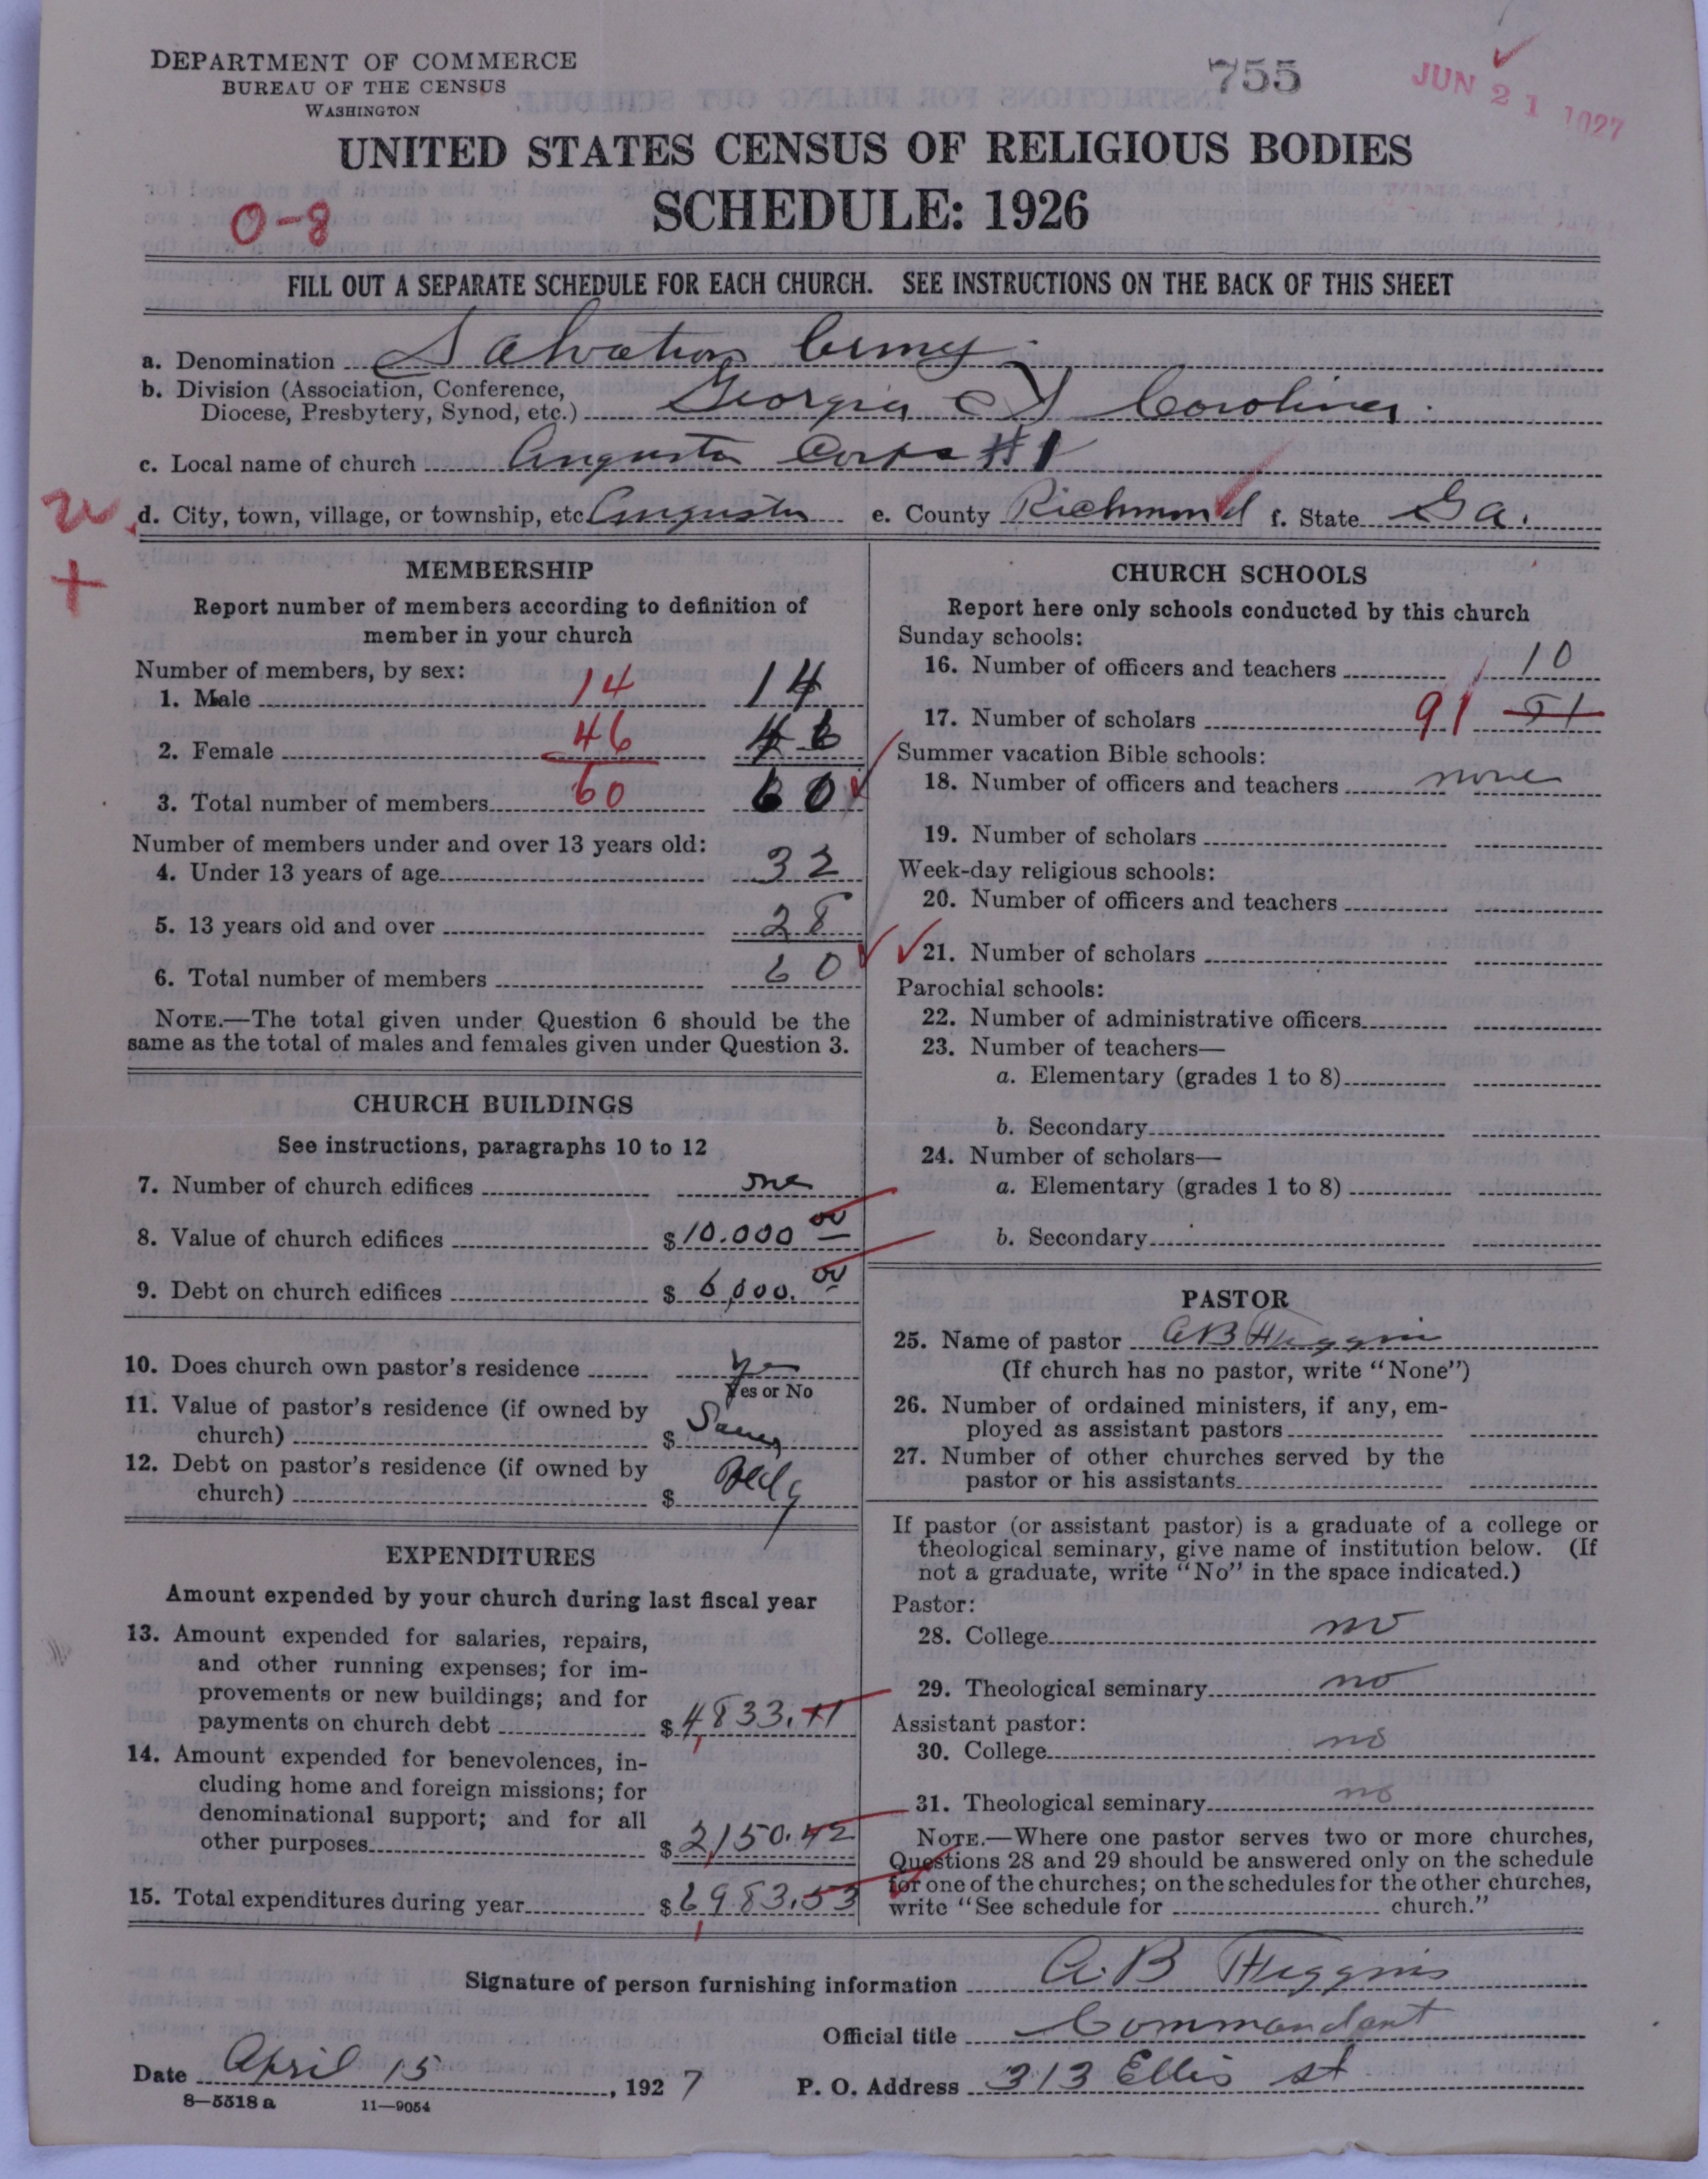 DEPARTMENT OF COMMERCE
BUREAU OF THE CENSUS
WASHINGTON
755
JUN 21 1927
UNITED STATES CENSUS OF RELIGIOUS BODIES
SCHEDULE: 1926
0-8
FILL OUT A SEPARATE SCHEDULE FOR EACH CHURCH. SEE INSTRUCTIONS ON THE BACK OF THIS SHEET
a. Denomination Salvation Army
b. Division (Association, Conference,
Diocese, Presbytery, Synod, etc.) Georgia & S Carolina
c. Local name of church Augusta Corps #1
d. City, town, village, or township, etc. Augusta e. County Richmond f. State Ga.
MEMBERSHIP
Report number of members according to definition of
member in your church
Number of members, by sex:
1. Male 14 14
2. Female 46 46
3. Total number of members 60 60
Number of members under and over 13 years old:
4. Under 13 years of age 32
5. 13 years old and over 28
6. Total number of members 60
NOTE.—The total given under Question 6 should be the
same as the total of males and females given under Question 3.
CHURCH BUILDINGS
See instructions, paragraphs 10 to 12
7. Number of church edifices one
8. Value of church edifices $ 10.000 00
9. Debt on church edifices $ 6,000. 00
10. Does church own pastor's residence yes
Yes or No
11. Value of pastor's residence (if owned by
church) $ Same
12. Debt on pastor's residence (if owned by
church) $ Bldg
EXPENDITURES
Amount expended by your church during last fiscal year
13. Amount expended for salaries, repairs,
and other running expenses; for im-
provements or new buildings; and for
payments on church debt $ 4833.11
14. Amount expended for benevolences, in-
cluding home and foreign missions; for
denominational support; and for all
other purposes $ 2,150.42
15. Total expenditures during year $ 6983.53
CHURCH SCHOOLS
Report here only schools conducted by this church
Sunday schools:
16. Number of officers and teachers 10
17. Number of scholars 91 91
Summer vacation Bible schools:
18. Number of officers and teachers none
19. Number of scholars
Week-day religious schools:
20. Number of officers and teachers
21. Number of scholars
Parochial schools:
22. Number of administrative officers
23. Number of teachers—
a. Elementary (grades 1 to 8)
b. Secondary
24. Number of scholars—
a. Elementary (grades 1 to 8)
b. Secondary
PASTOR
25. Name of pastor A B Huggins
(If church has no pastor, write "None")
26. Number of ordained ministers, if any, em-
ployed as assistant pastors
27. Number of other churches served by the
pastor or his assistants
If pastor (or assistant pastor) is a graduate of a college or
theological seminary, give name of institution below. (If
not a graduate, write "No" in the space indicated.)
Pastor:
28. College no
29. Theological seminary no
Assistant pastor:
30. College no
31. Theological seminary no
NOTE.—Where one pastor serves two or more churches,
Questions 28 and 29 should be answered only on the schedule
for one of the churches; on the schedules for the other churches,
write "See schedule for church."
Signature of person furnishing information A. B Huggins
Official title Commandant
Date April 15, 1927 P. O. Address 313 Ellis st
8—5518 a 11—9054